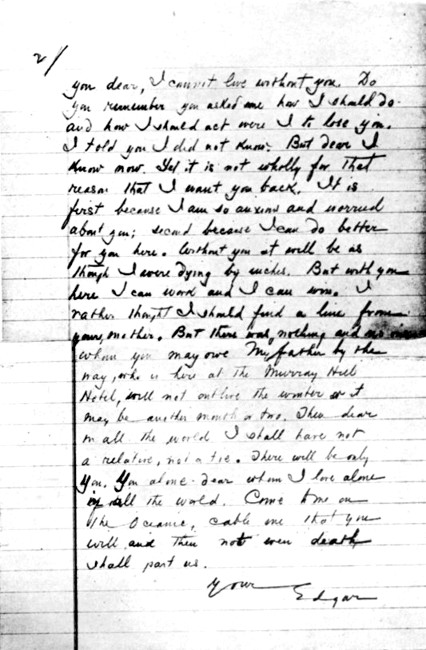 2/
you dear, I cannot live without you. Do
you remember you asked me how I should do
and how I should act were I to lose you.
I told you I did not know. But dear I
know now. Yet it is not wholly for that
reason that I want you back. It is
first because I am so anxious and worried
about you; second because I can do better
for you here. Without you it will be as
though I were dying by inches. But with you
here I can work and I can win. I
rather thought I should find a line from
your mother. But there was nothing and
whom you may owe My father by the
way, who is here at the Murray Hill
Hotel, will not outlive the winter or it
may be another month or two. Then dear
in all the world I shall have not
a relative, not a tie. There will be only
you. You alone dear whom I love alone
in all the world. Come to me on
the Oceanic, cable me that you
will and then not even death
shall part us.
Your
Edgar